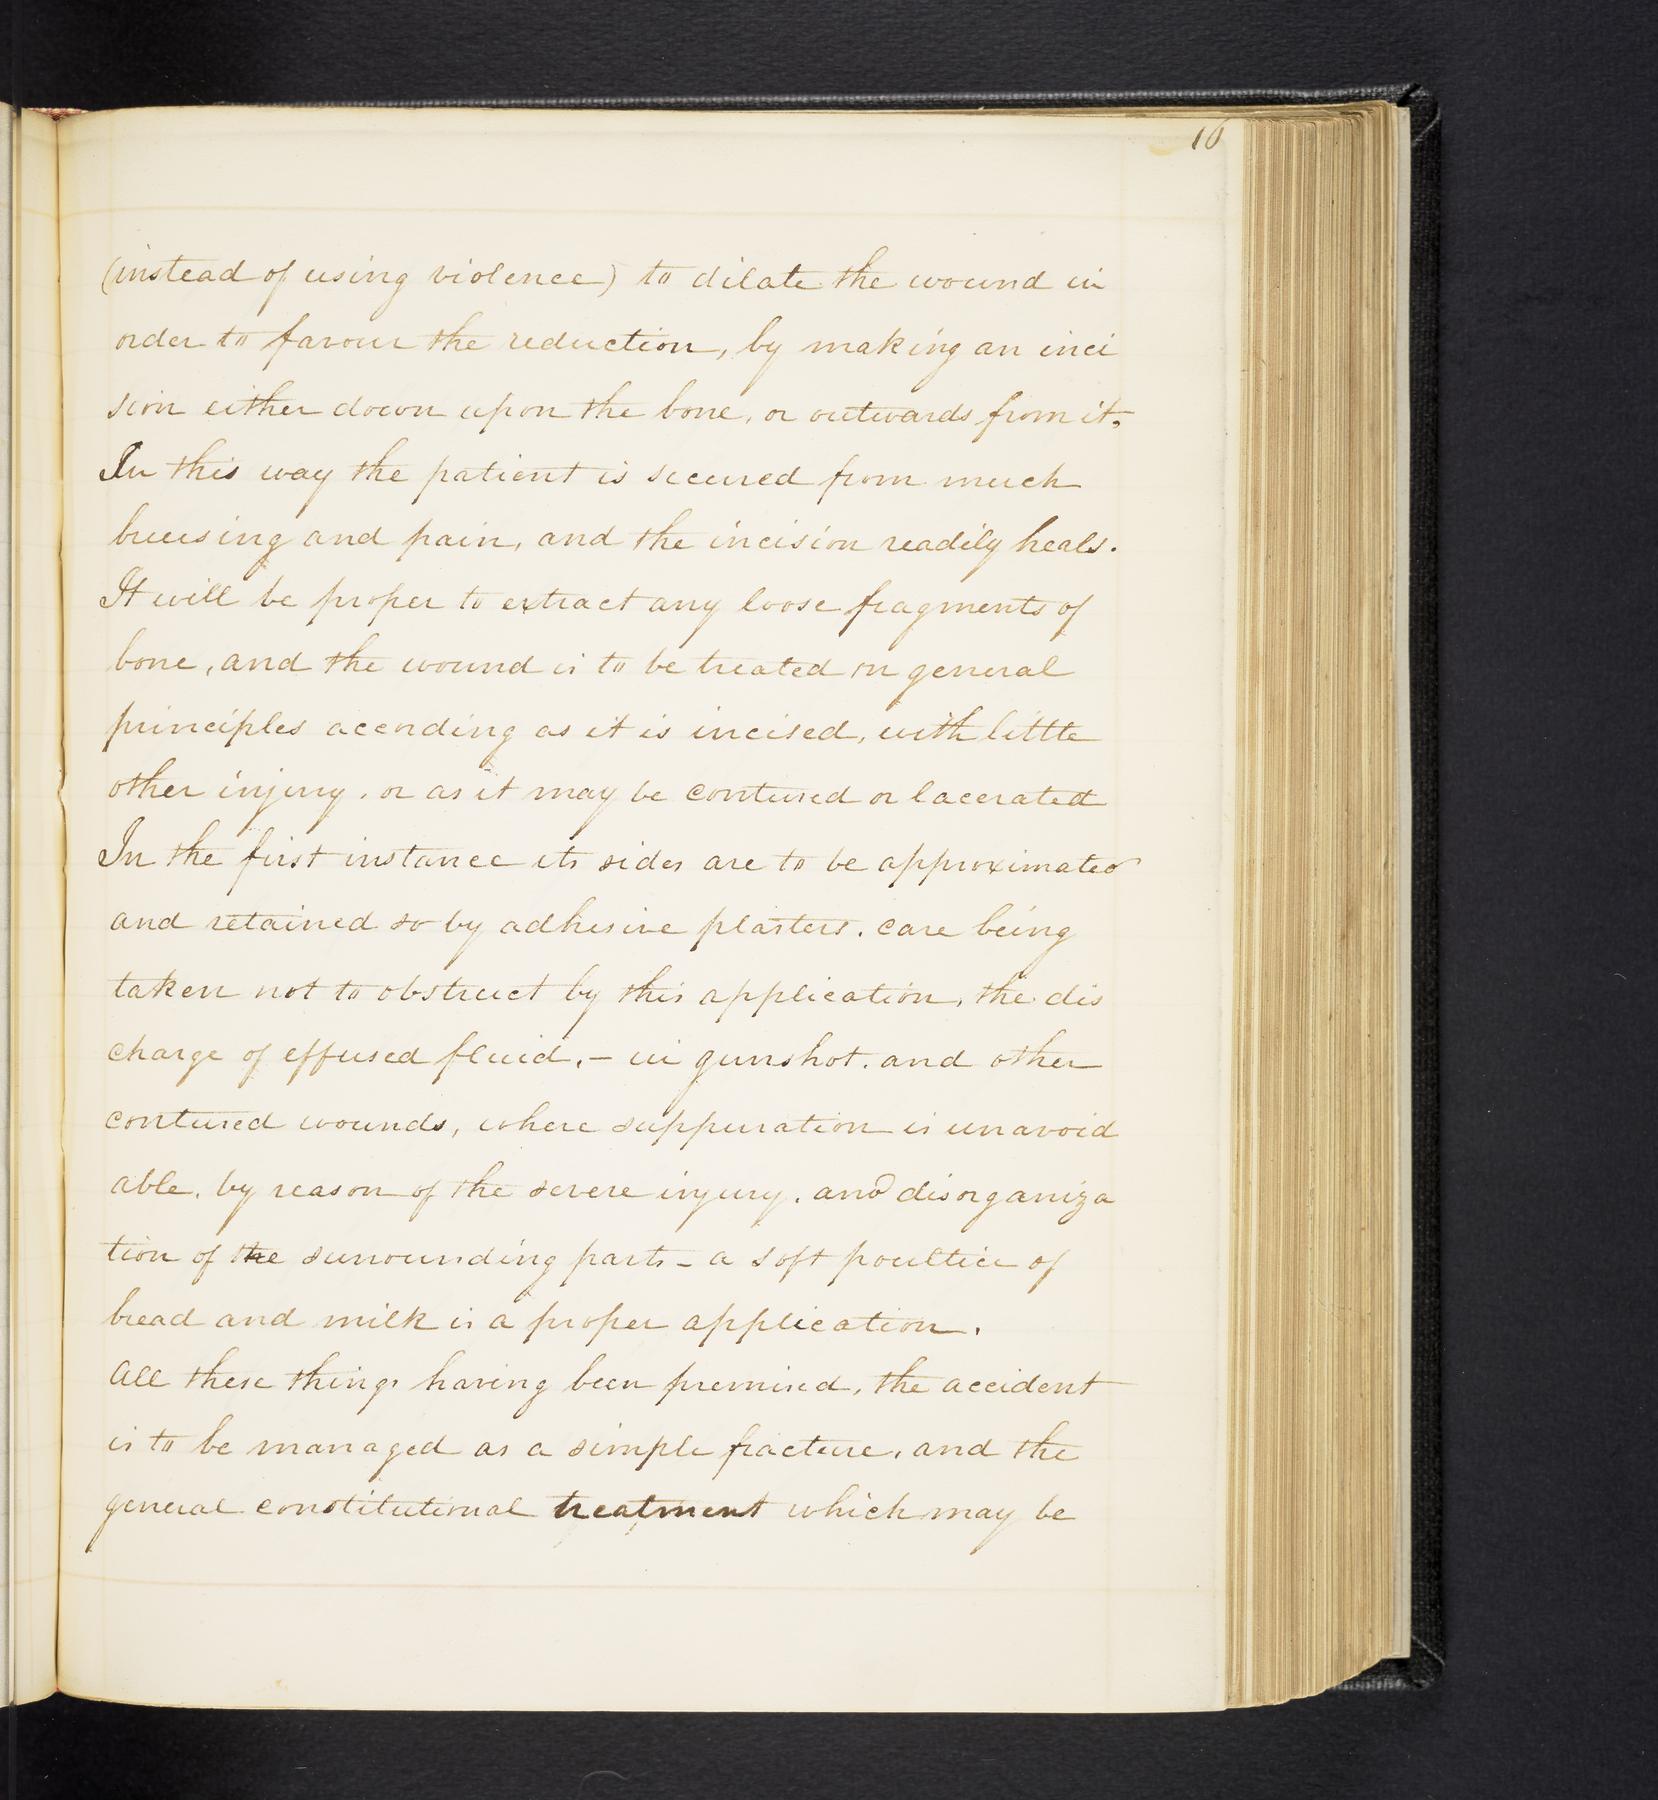 16
(instead of using violence) to dilate the wound in
order to favour the reduction, by making an inci
sion either down upon the bone, or outwards from it.
In this way the patient is secured from much
bruising and pain, and the incision readily heals.
It will be proper to extract any loose fragments of
bone, and the wound is to be treated on general
principles according as it is incised, with little
other injury, or as it may be contused or lacerated
In the first instance its sides are to be approximated
and retained so by adhesive plasters, care being
taken not to obstruct by this application, the dis
charge of effused fluid, – in gunshot, and other
contused wounds, where suppuration is unavoid
able, by reason of the severe injury, and disorganiza
tion of the surrounding parts – a soft poultice of
bread and milk is a proper application.
All these things having been premised, the accident
is to be managed as a simple fracture, and the
general constitutional treatment which may be